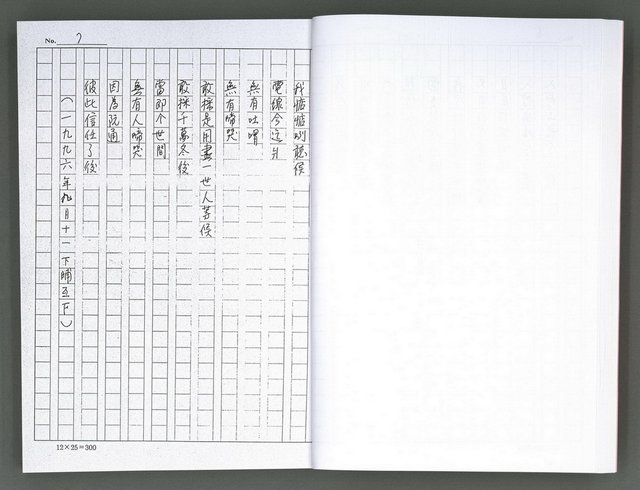 No. 7
我惦惦咧聽候
電線今這爿
無有吐喟
無有啼哭
敢採是用盡一世人等候
敢採千萬冬後
當即个世間
無有人啼哭
因為阮通
彼此信任了後
(一九九六年九月十一 下晡五下)
12×25=300